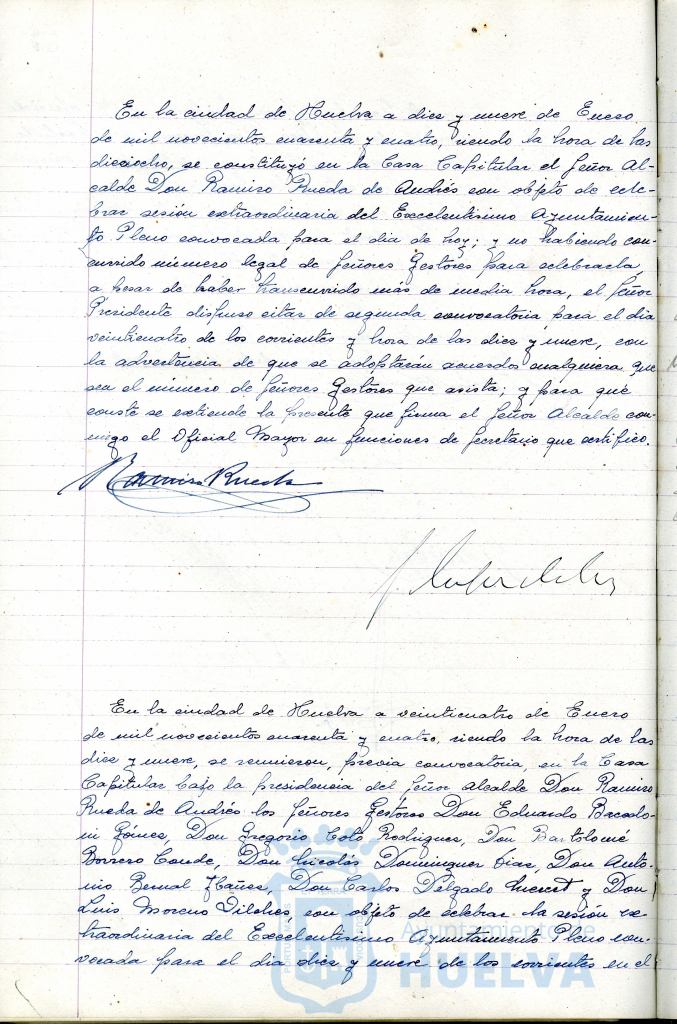 En la ciudad de Huelva a diez y nueve de Enero
de mil novecientos cuarenta y cuatro, siendo la hora de las
dieciocho, se constituyó en la Casa Capitular el Señor Al-
calde Don Ramiro Rueda de Andrés con objeto de cele-
brar sesión extraordinaria del Excelentísimo Ayuntamien-
to Pleno convocada para el dia de hoy; y no habiendo con-
currido número legal de Señores Gestores para celebrarla,
a pesar de haber transcurrido más de media hora, el Señor
Presidente dispuso citar de segunda convocatoria para el dia
veinticuatro de los corrientes y hora de las diez y nueve, con
la advertencia de que se adoptarán acuerdos cualquiera que
sea el número de Señores Gestores que asista; y para que
conste se extiende la presente que firma el Señor Alcalde con-
migo el Oficial Mayor en funciones de Secretario que certifico.
Ramiro Rueda
En la ciudad de Huelva a veinticuatro de Enero
de mil novecientos cuarenta y cuatro, siendo la hora de las
diez y nueve, se reunieron, previa convocatoria, en la Casa
Capitular bajo la presidencia del Señor Alcalde Don Ramiro
Rueda de Andrés los Señores Gestores Don Eduardo
Don Gregorio Coto Rodriguez, Don Bartolomé
Borrero Conde, Don Nicolás Dominguez Diaz, Don Anto-
nio Bernal Ibañez, Don Carlos Delgado y Don
Luis Moreno Vilches, con objeto de celebrar la sesión ex-
traordinaria del Excelentísimo Ayuntamiento Pleno con-
vocada para el dia diez y nueve de los corrientes en el
Ayuntamiento de
HUELVA